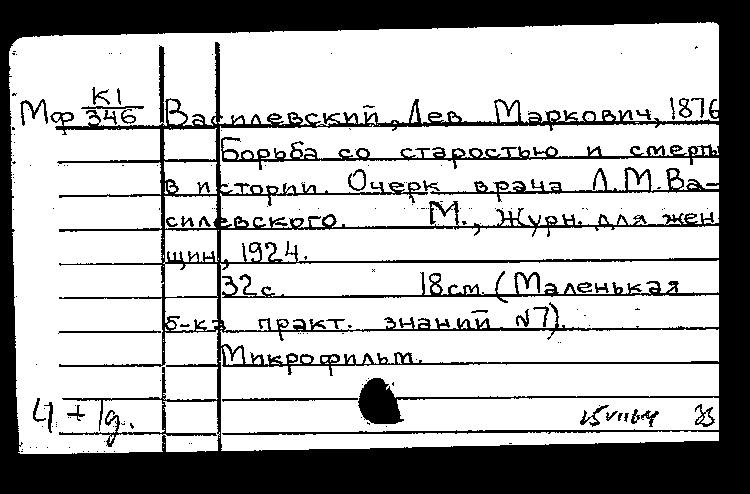 Мф К1/346 Василевский, Лев Маркович, 1876
Борьба со старостью и смерть
в истории. Очерк врача Л.М.Ва-
силевского. М., Журн. для жен
щин, 1924.
32 с. 18 см (Маленькая
б-ка практ. знаний №7).
Микрофильм.
4 + 1д.